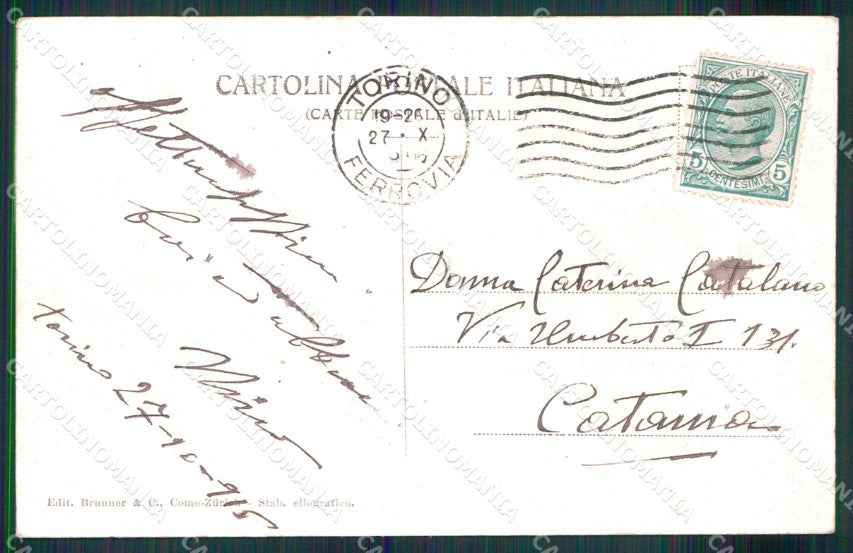 CARTOLINA POSTALE ITALIANA
(CARTE POSTALE d'ITALIE)
TORINO
19-20
27 · X
FERROVIA
POSTE ITALIANE
5 CENTESIMI 5
Baci
Torino 27-10-915
Donna Caterina Catalano
Via Umberto I 131.
Catania
Edit. Brunner & C., Como-Zürich - Stab. eliografico.
CARTOLINOMANIA